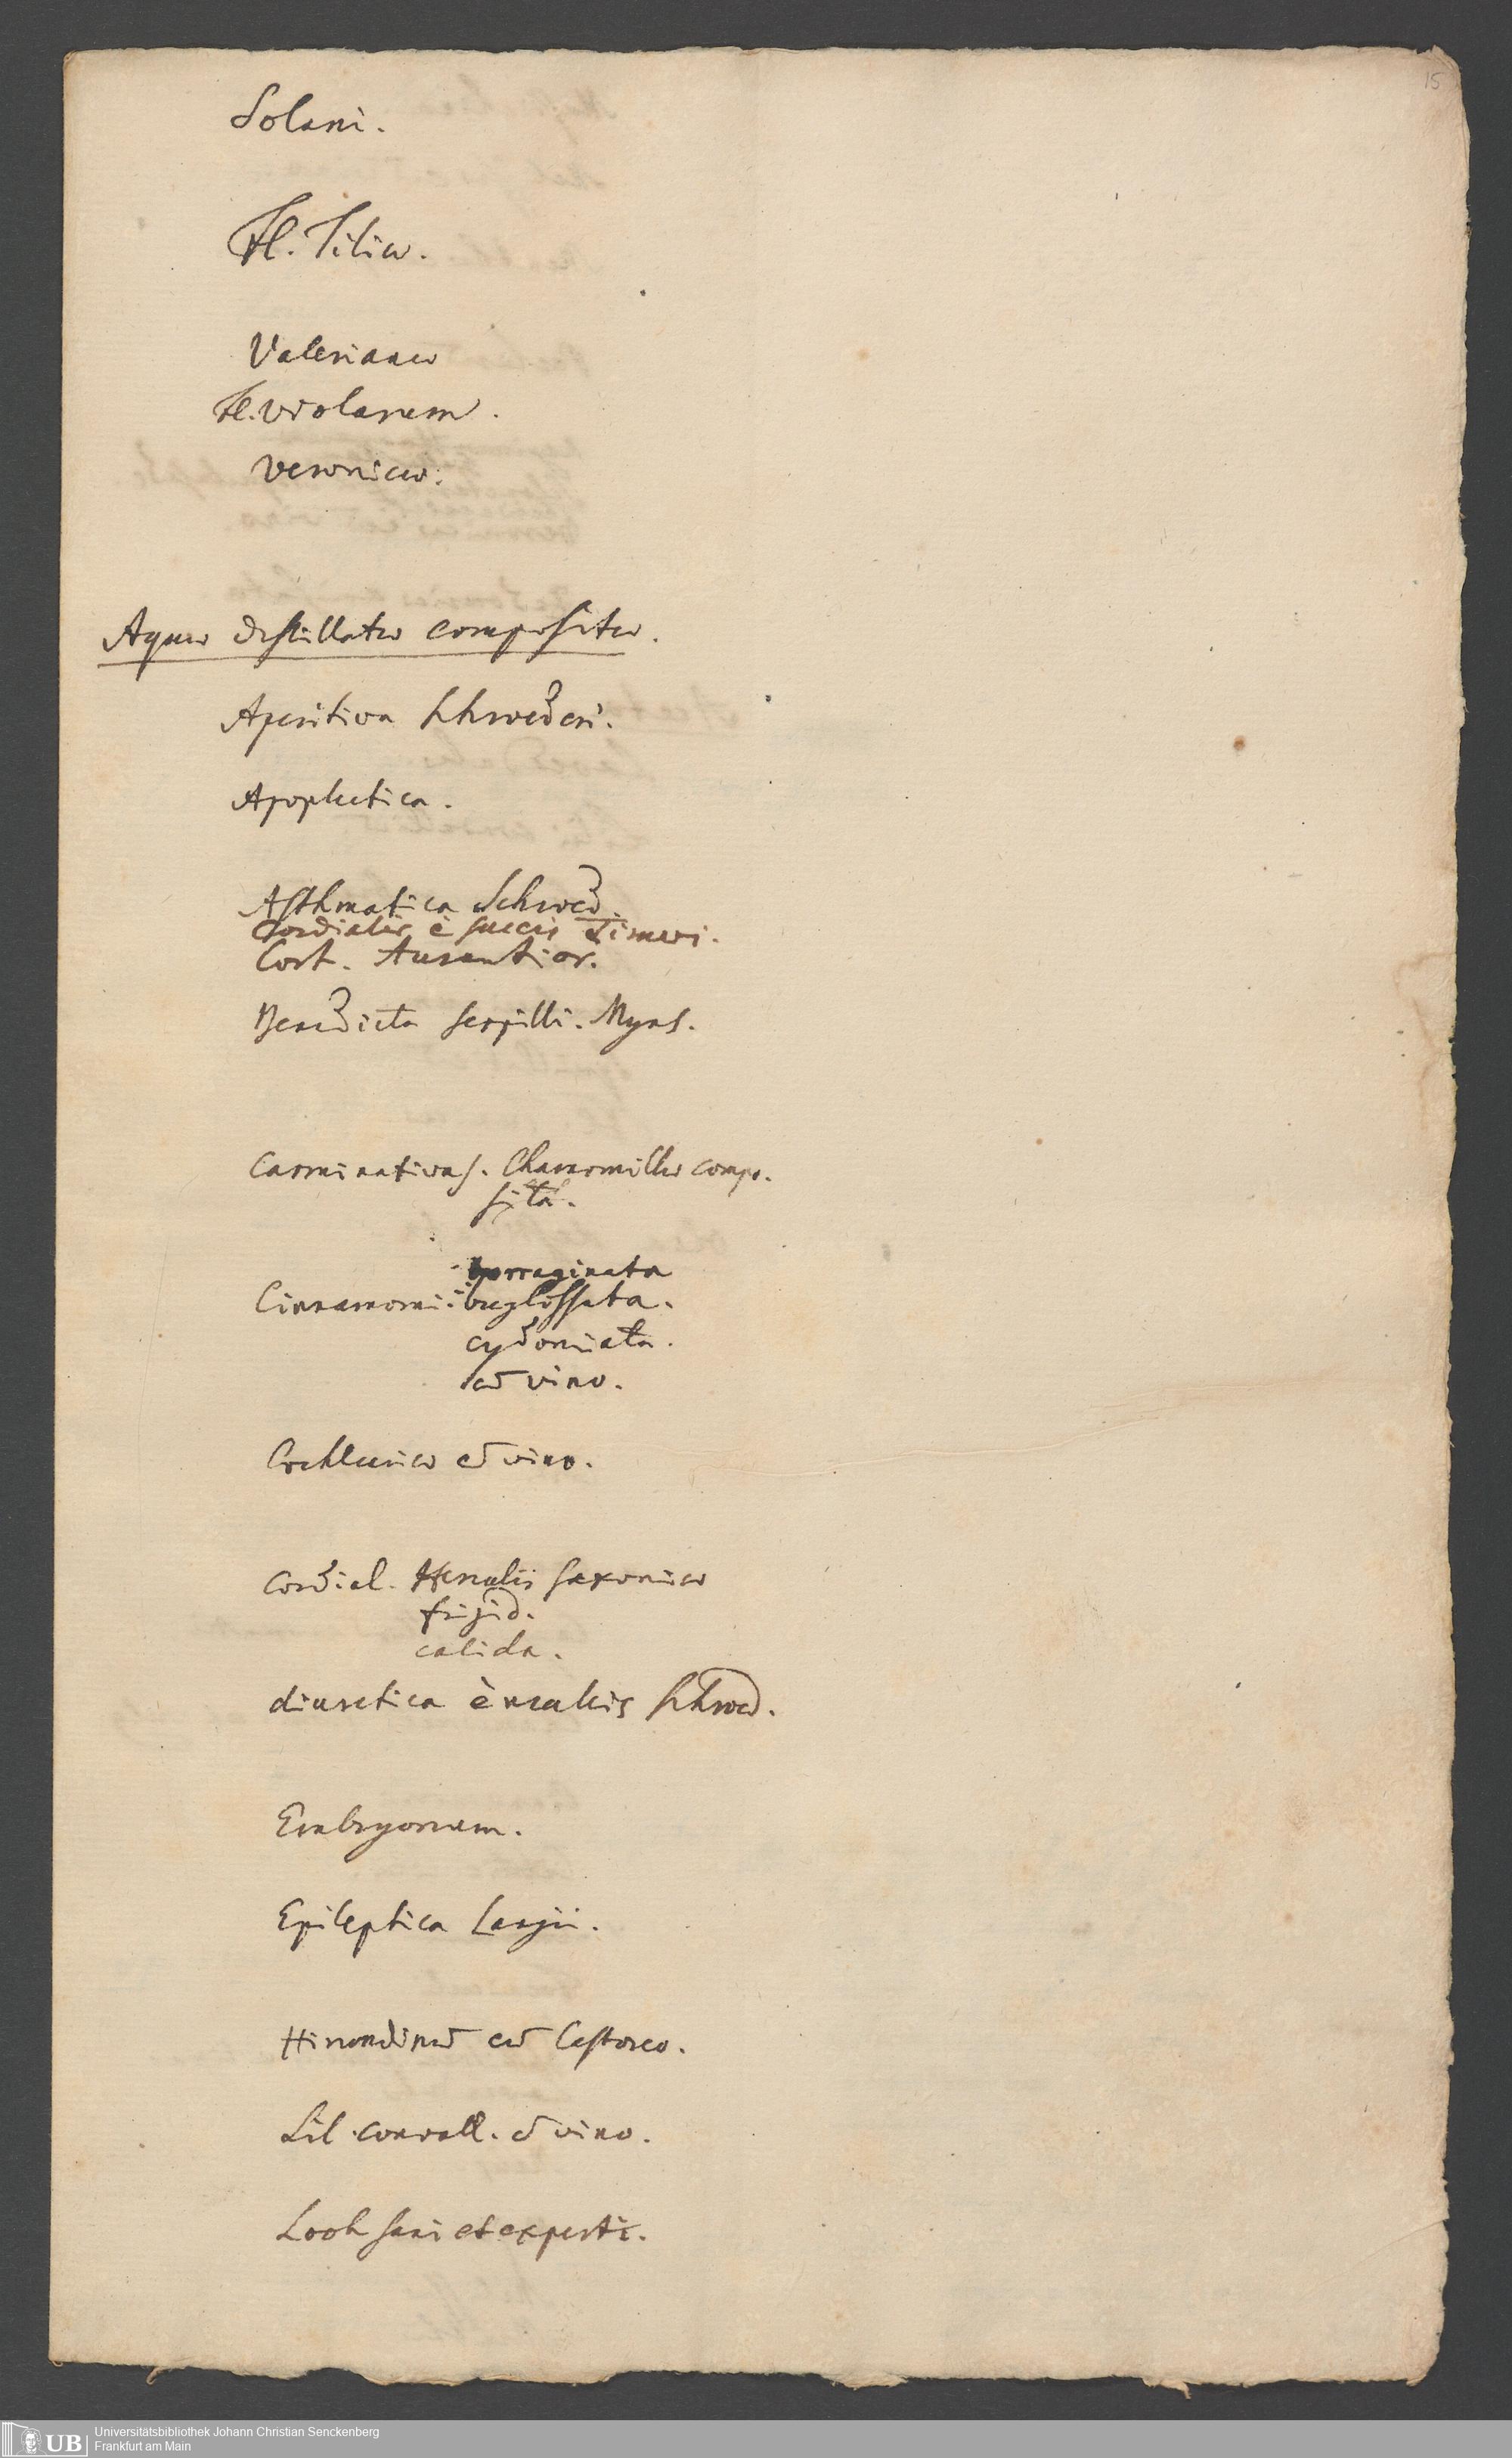 15
Solani.
Fl. Tiliæ.
Valerianæ
Fl. violarum.
veronicæ.
Aquæ destillatæ compositæ.
Aperitiva Schroederi.
Apoplectica.
Asthmatica Schroed.
Cordialis è succis Timæi.
Cort. Aurantior.
Benedicta serpilli. Myns.
Carminativa s. Chamomillæ compo-
sita.
borraginata
Cinnamomi: buglossata.
cydoniata.
cū vino.
Cochleariæ cū vino.
Cordial. Herculis Saxonicæ
frigid.
calida.
diuretica è Schroed.
Embryonum.
Epileptica Langii.
Hirundinū cū Castoreo.
Lil. convall. cū vino.
Looh sani et experti.
Universitätsbibliothek Johann Christian Senckenberg
UB
Frankfurt am Main